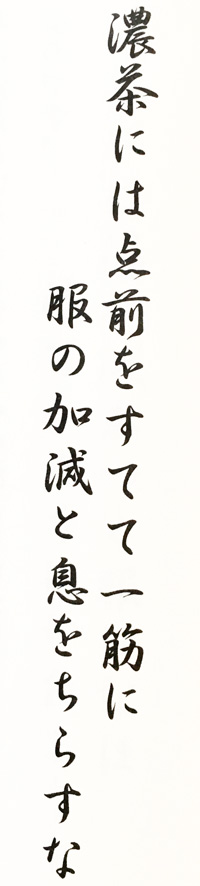 濃茶には点前をすてて一筋に
服の加減と息をちらすな